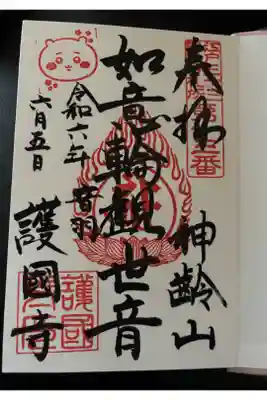 奉拝
神齢山
如意輪觀世音
令和六年 音羽
六月五日
護國寺
護國